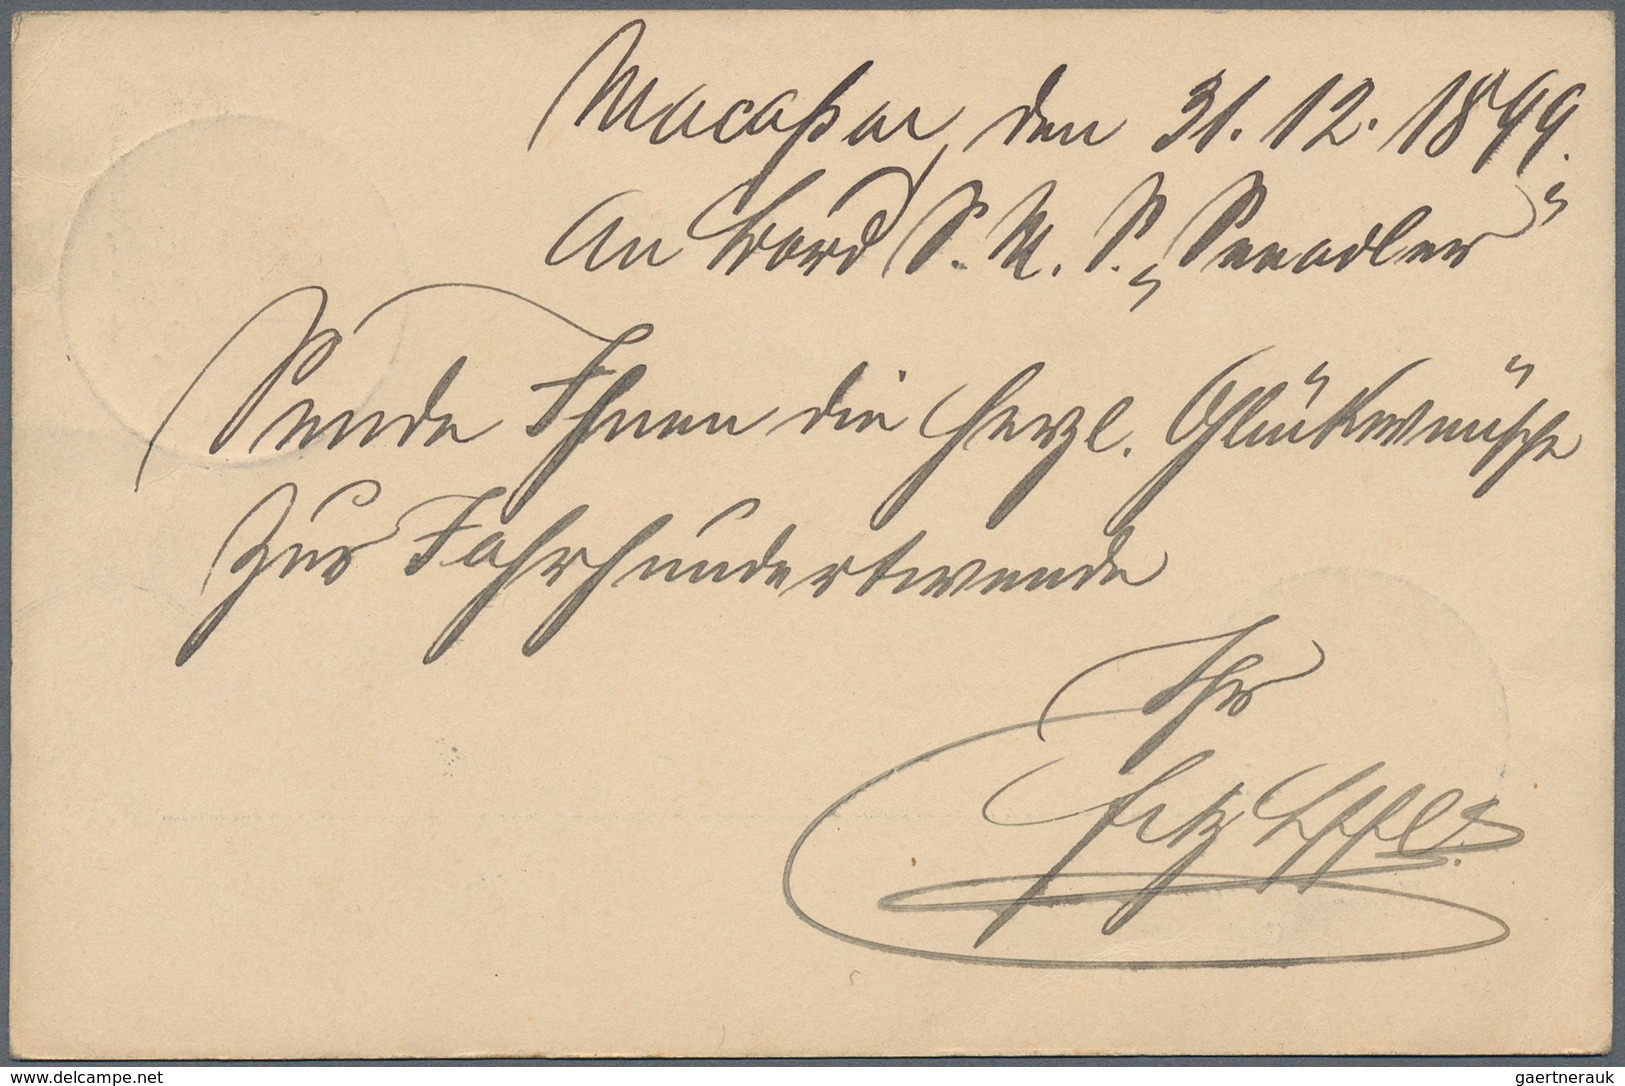 Macaßar, den 31.12.1899.
An Bord S. M. S. „Seeadler"
Sende Ihnen die herzl. Glückwünsche
zur Jahrhundertwende
Ihr
Fritz
www.delcampe.net
gaertnerauk